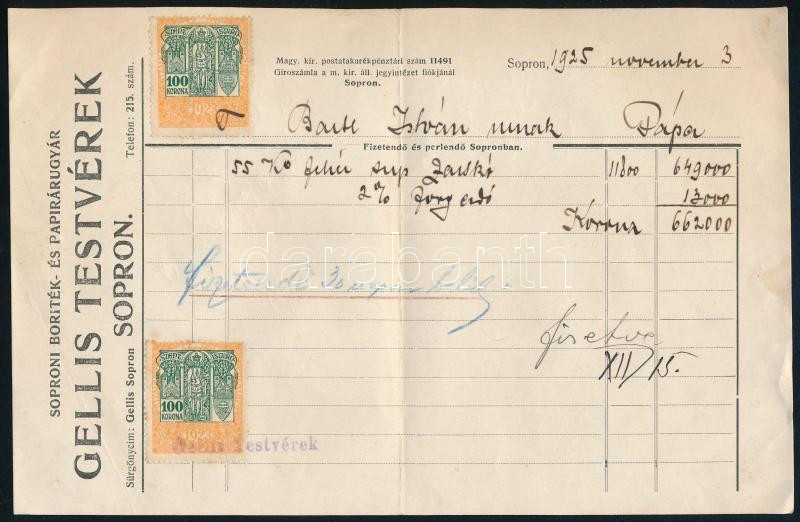 SOPRONI BORITÉK- ÉS PAPIRÁRUGYÁR
GELLIS TESTVÉREK
SOPRON.
Sürgönycim: Gellis Sopron Telefon: 215. szám.
Magy. kir. postatakarékpénztári szám 11491
Giroszámla a m. kir. áll. jegyintézet fiókjánál
Sopron.
Sopron, 1925 november 3
István urnak Pápa
Fizetendő és perlendő Sopronban.
55 Ko fehér sup zacskó 11800 649000
2% forg adó 13000
Korona 662000
30 nap
fizetve
XII/15.
100
KORONA
1922
100
KORONA
1922
Gellis Testvérek
darabanth